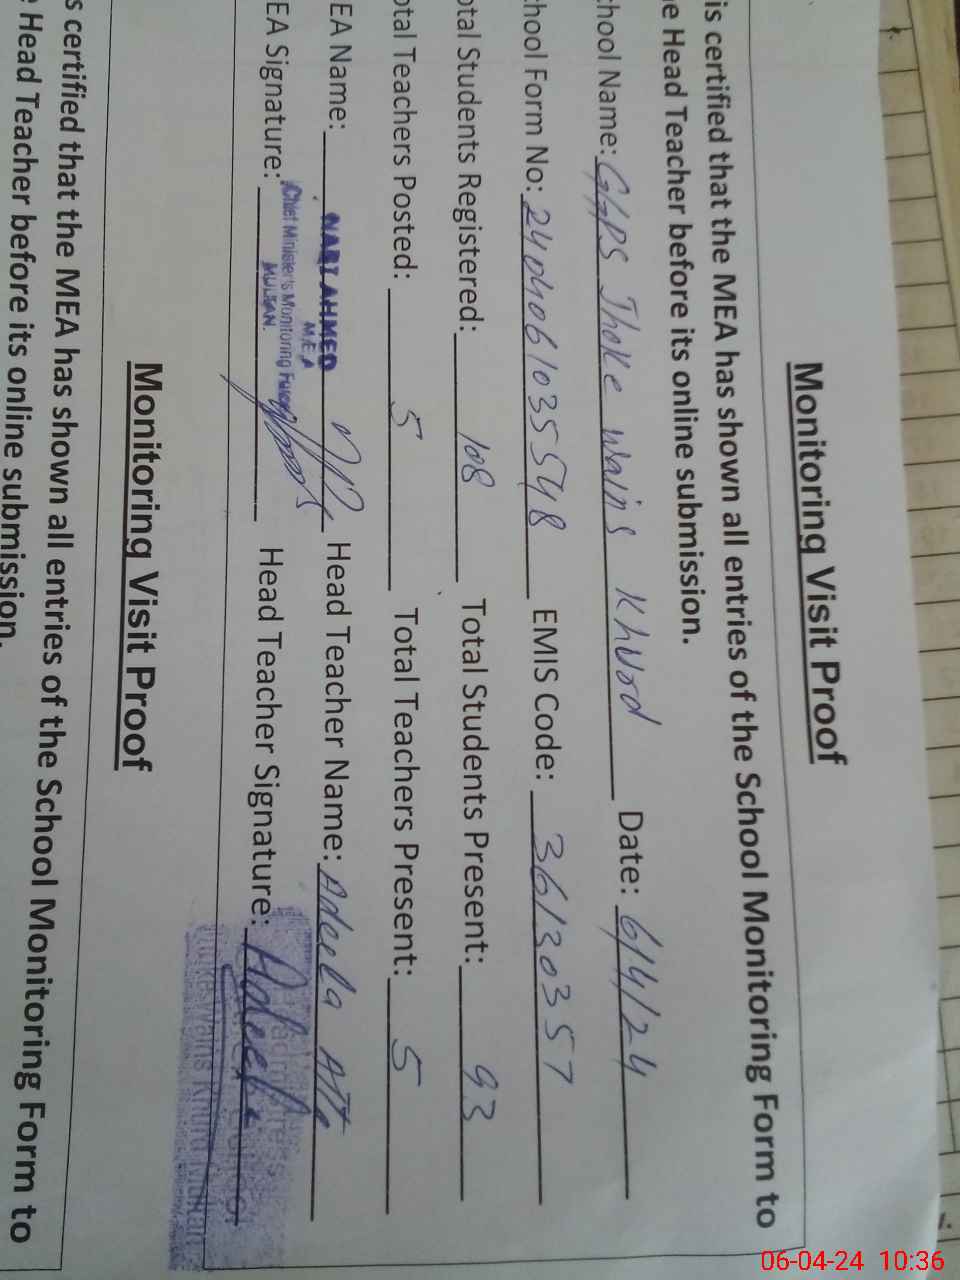 Monitoring Visit Proof
is certified that the MEA has shown all entries of the School Monitoring Form to
e Head Teacher before its online submission.
chool Name: GGPS Thoke wains Khurd Date: 6/4/24
chool Form No: 2404061035548 EMIS Code: 36130357
otal Students Registered: 108 Total Students Present: 93
otal Teachers Posted: 5 Total Teachers Present: 5
EA Name: NABI AHMED Head Teacher Name: Adeela Atta
M.E.A
Chief Minister's Monitoring Force
MULTAN.
EA Signature: Head Teacher Signature: Adeela
Monitoring Visit Proof
s certified that the MEA has shown all entries of the School Monitoring Form to
e Head Teacher before its online submission.
06-04-24 10:36